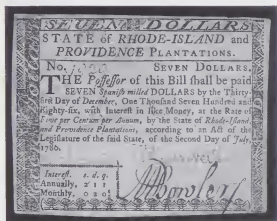 SEVEN DOLLARS.
STATE of RHODE-ISLAND and
PROVIDENCE PLANTATIONS.
No. SEVEN DOLLARS.
THE Possessor of this Bill shall be paid
SEVEN Spanish milled DOLLARS by the Thirty-
first Day of December, One Thousand Seven Hundred and
Eighty-six, with Interest in like Money, at the Rate of
Five per Centum per Annum, by the State of Rhode-Island
and Providence Plantations, according to an Act of the
Legislature of the said State, of the Second Day of July,
1780.
Interest. s. d. q.
Annually, 2 1 1
Monthly, 0 2 0